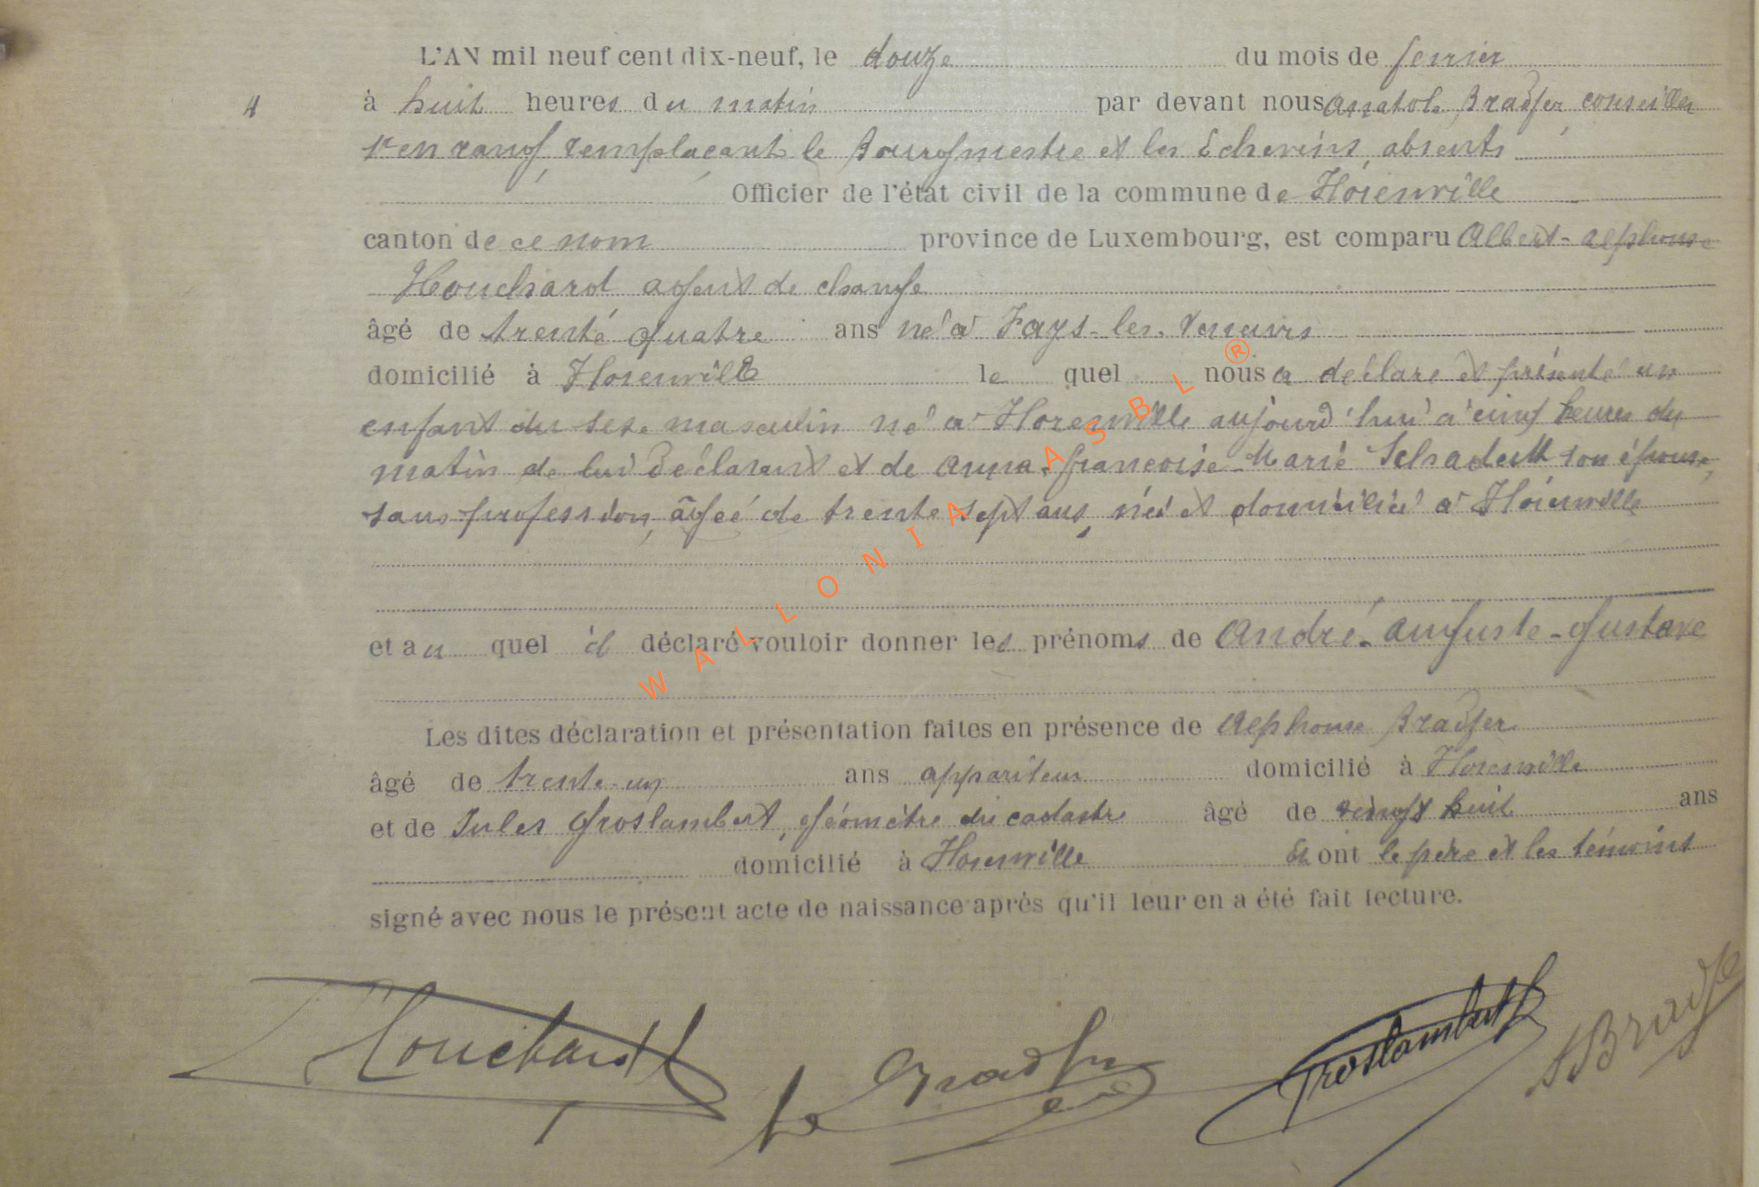 L'AN mil neuf cent dix-neuf, le douze du mois de fevrier
4 à huit heures du matin par devant nous Anatole Bradfer conseiller
1er en rang, remplaçant le Bourgmestre et les Echevins, absents
Officier de l'état civil de la commune de Florenville
canton de ce nom province de Luxembourg, est comparu Albert-Alphonse
Houchard agent de change
âgé de trente quatre ans né à Fays-les-Veneurs
domicilié à Florenville le quel nous a déclaré et présenté un
enfant du sexe masculin né à Florenville aujourd'hui à cinq heures du
matin de lui déclarant et de Anna-françoise-Marie son épouse,
sans profession, âgée de trente sept ans, née et domiciliée à Florenville
et au quel il déclaré vouloir donner les prénoms de André-Auguste-Gustave
Les dites déclaration et présentation faites en présence de Alphonse Bradfer
âgé de trente-un ans appariteur domicilié à Florenville
et de Jules Groslambert, géomètre du cadastre âgé de vingt huit ans
domicilié à Florenville Et ont le père et les témoins
signé avec nous le présent acte de naissance après qu'il leur en a été fait lecture.
Houchard Bradfer Groslambert A Bradfer
WALLONIA ASBL ®